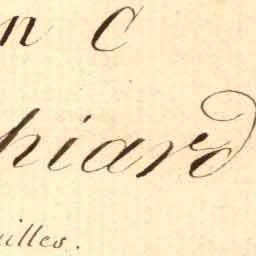 n C
hiard
uilles.